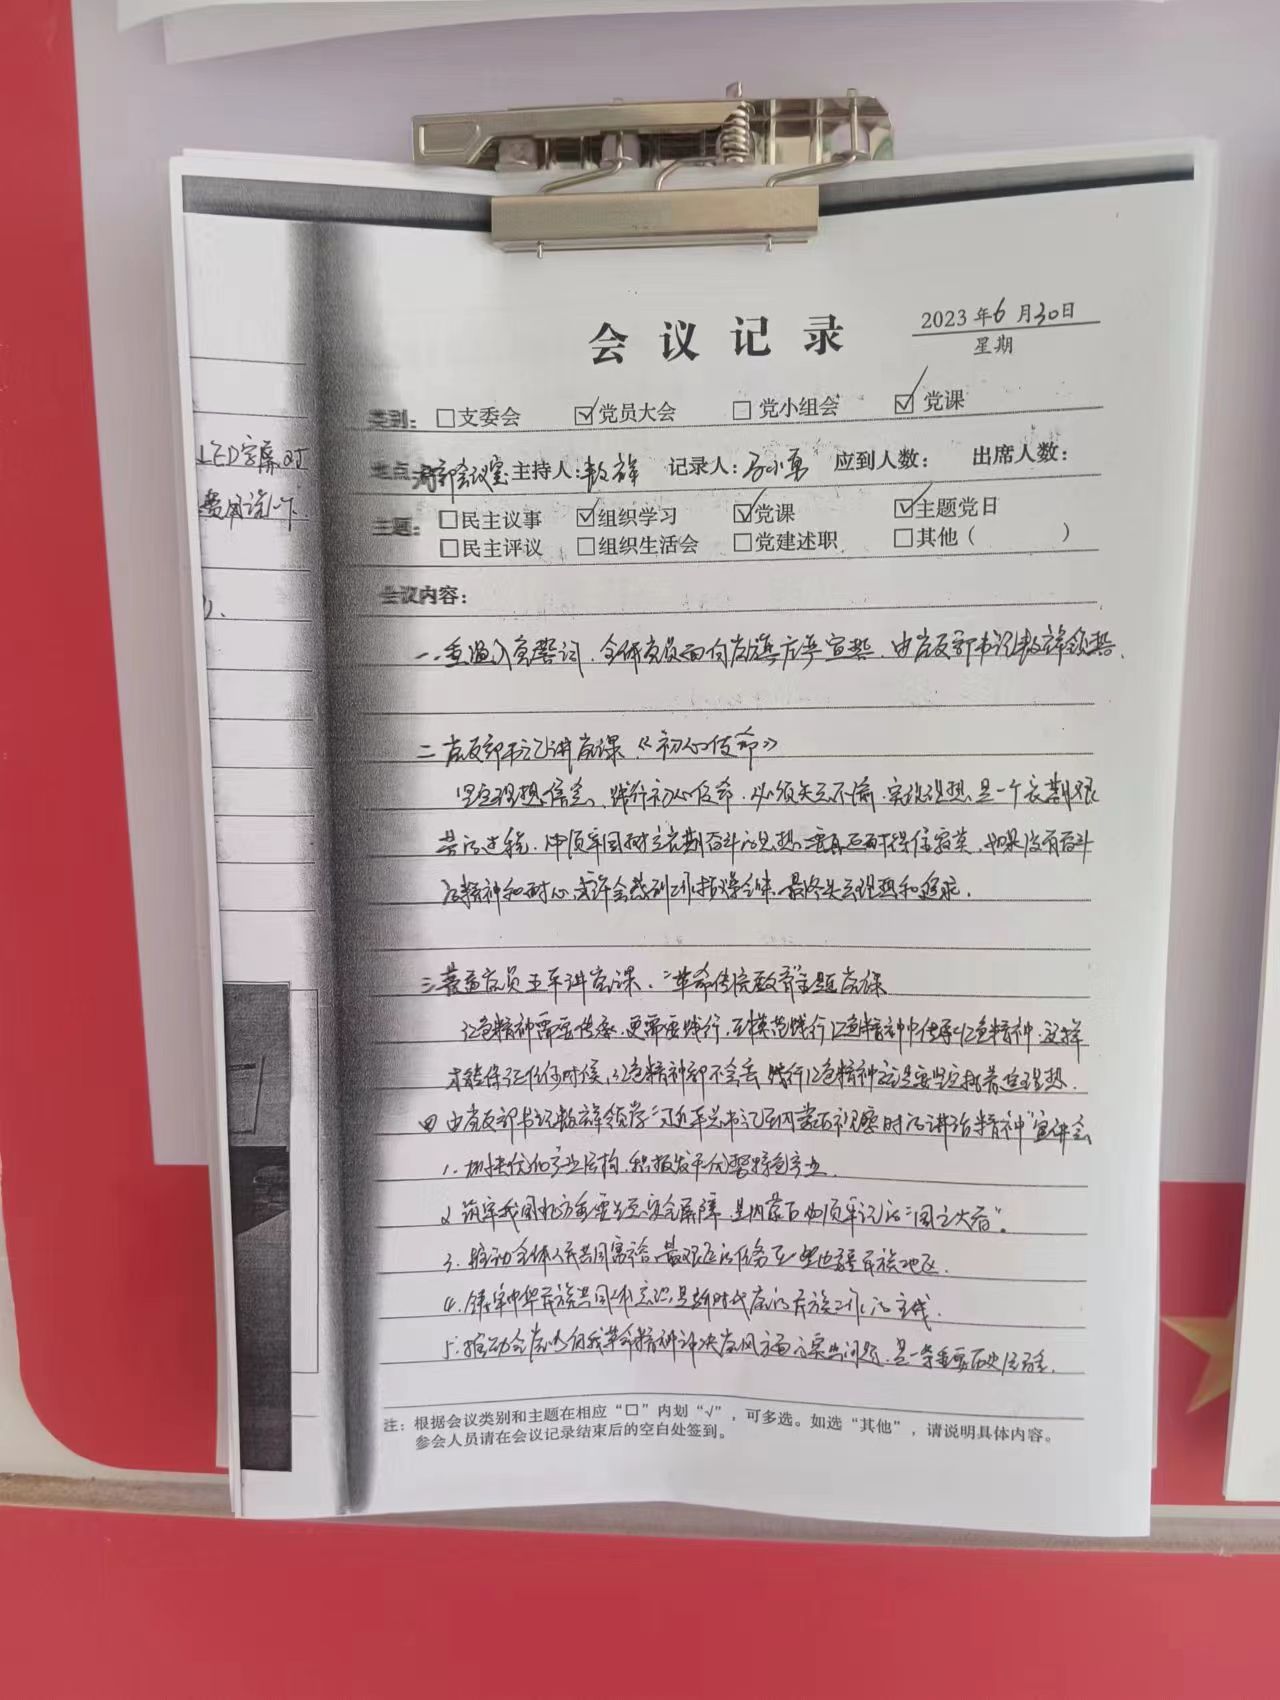 会议记录
2023年6月30日
星期
类别： □支委会 ☑党员大会 □党小组会 ☑党课
地点 会议室 主持人：敖祥 记录人： 小勇 应到人数： 出席人数：
主题： □民主议事 ☑组织学习 ☑党课 ☑主题党日
□民主评议 □组织生活会 □党建述职 □其他（ ）
会议内容：
一、重温入党誓词，全体党员面向党旗庄严宣誓，由党支部书记敖祥领誓。
二 党支部书记讲党课《初心使命》
坚定理想信念、践行初心使命，必须矢志不渝，实现理想是一个长期艰
苦的过程，必须牢固树立长期奋斗的思想 耐得住寂寞，如果没有奋斗
的精神和耐心，或许会感到工作枯燥乏味，最终失去理想和追求。
三 党员王军讲党课，“革命传统教育”主题党课
红色精神需要传承，更需要践行，在模范践行红色精神中传承红色精神，这样
才能保证任何时候，红色精神都不会丢 践行红色精神 要坚定 理想。
四 由党支部书记敖祥领学“习近平总书记在内蒙古视察时的讲话精神”宣讲会
1. 加快优化产业结构，积极发展优势特色产业。
2. 筑牢我国北方重要 安全屏障，是内蒙古必须牢记的“国之大者”。
3. 推动全体人民共同富裕，最艰巨的任务在一些边疆民族地区。
4. 铸牢中华民族共同体意识，是新时代党的民族工作的主线。
5. 推动全党以自我革命精神解决党风方面的突出问题，是一条重要历史经验。
注：根据会议类别和主题在相应“□”内划“√”，可多选。如选“其他”，请说明具体内容。
参会人员请在会议记录结束后的空白处签到。
LED字屏对
费用说一下